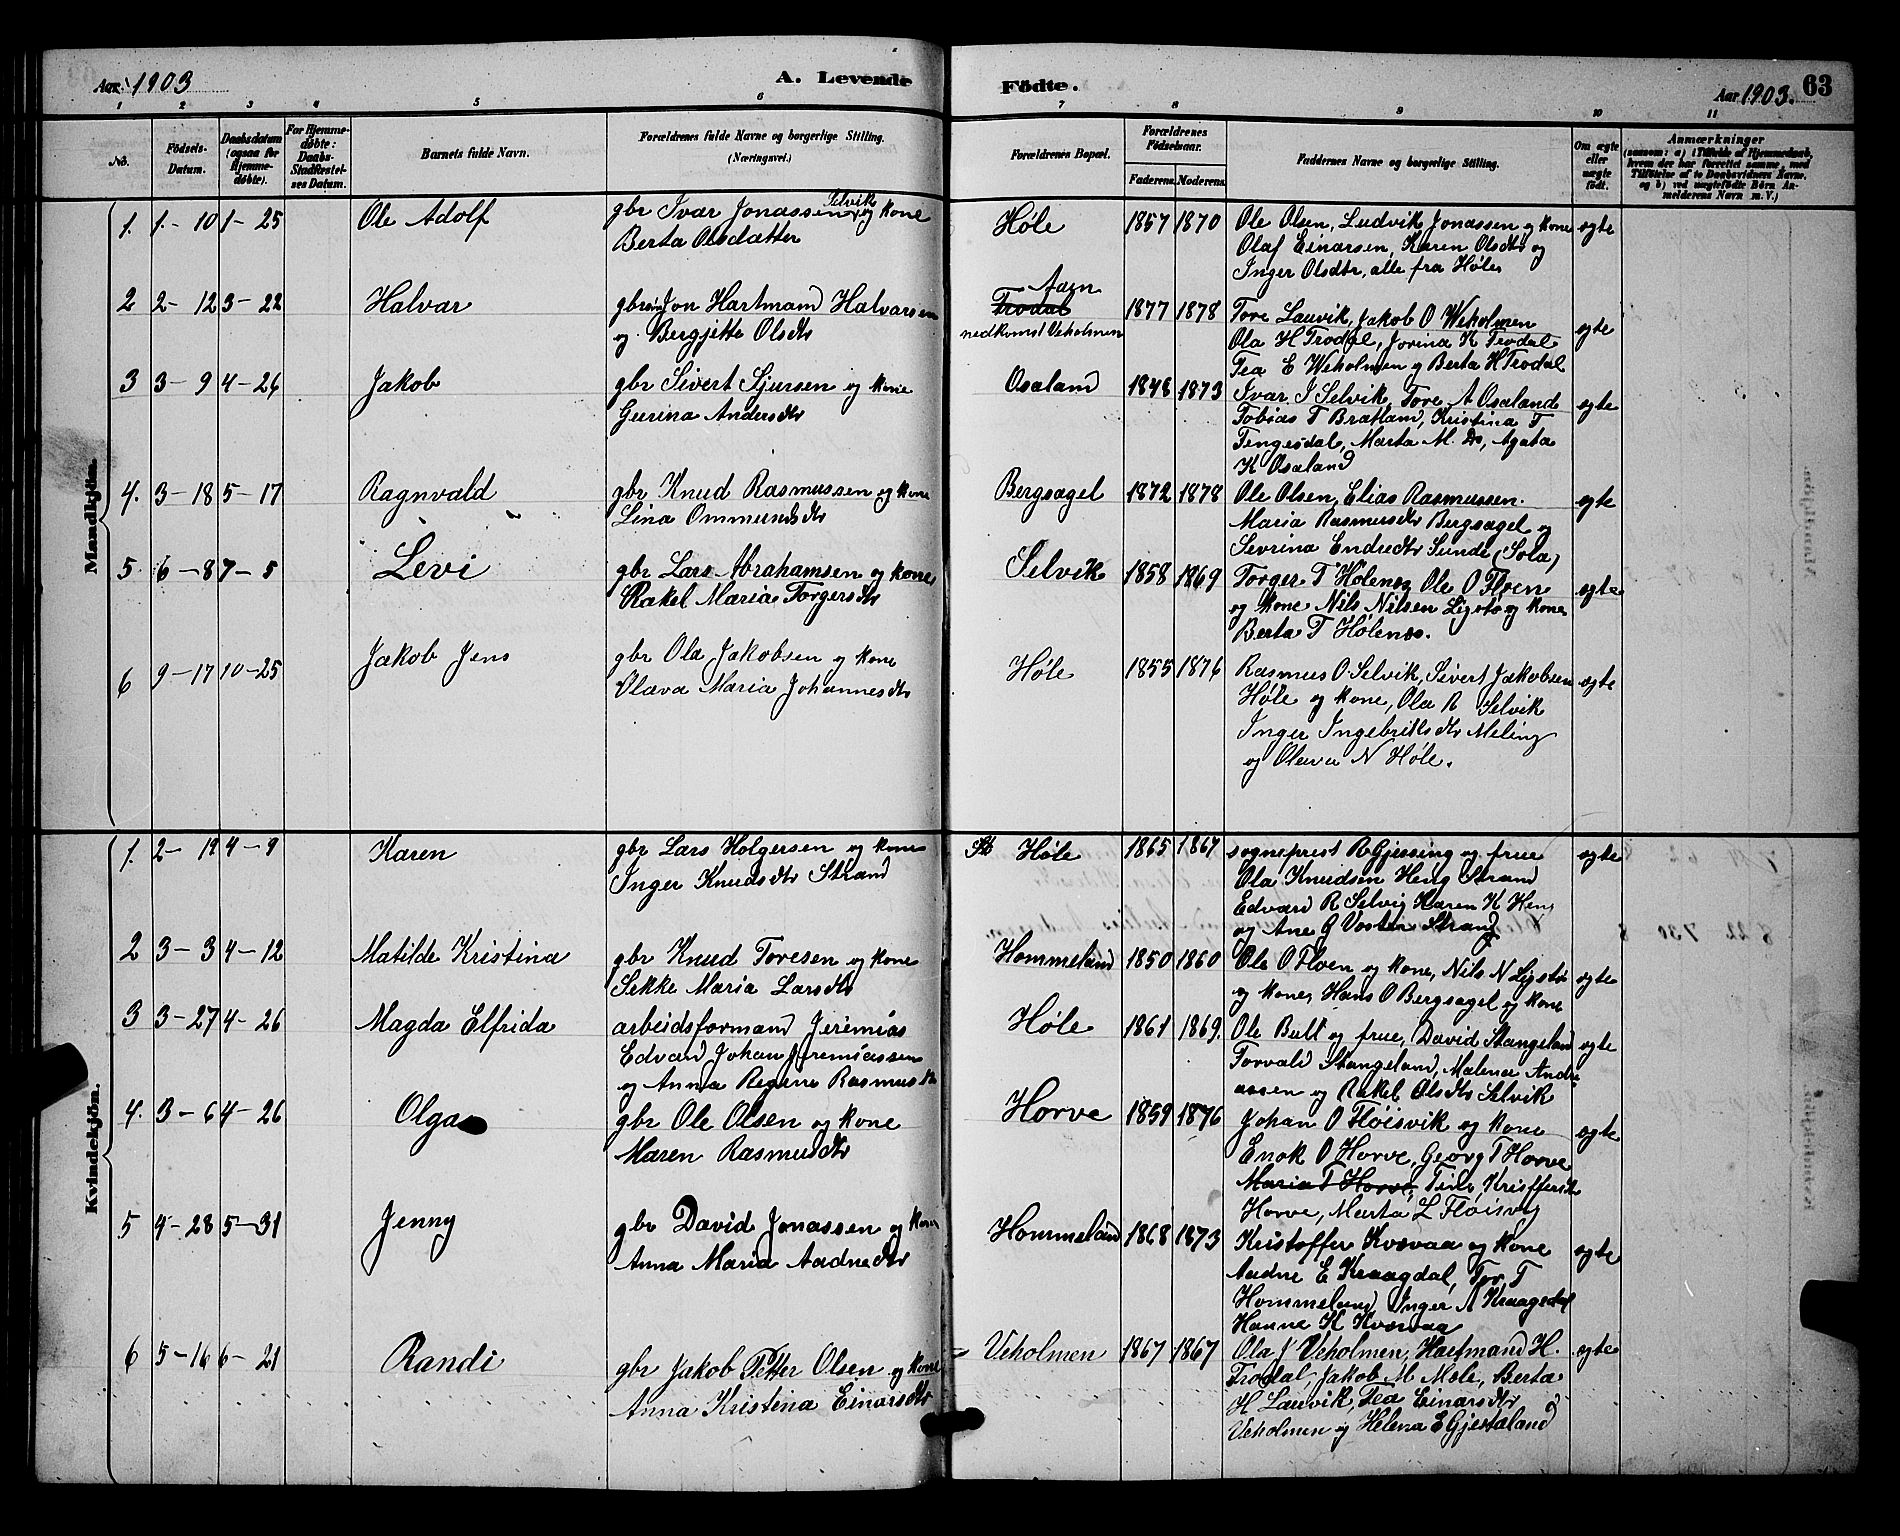 Aar 1903
A. Levende
Födte.
Aar 1903. 63
1 2 3 4 5 6 7 8 9 10 11
No.
Födsels-Datum.
Daabsdatum (ogsaa for Hjemme-döbte).
For Hjemme-döbte: Daabs-Stadfæstel-ses Datum.
Barnets fulde Navn.
Forældrenes fulde Navne og borgerlige Stilling. (Næringsvei.)
Forældrenes Bopæl.
Forældrenes Födselsaar.
Faderens. Moderens.
Faddernes Navne og borgerlige Stilling.
Om ægte eller uægte födt.
Anmærkninger
(saasom: a) Tilfælde af Hjemmedaab, hvem der har forrettet samme, med Tilföielse af to Daabsvidners Navne. og b) ved uægtefödte Börn An-melderens Navn m. V.)
Mandkjön.
1. 1-10 1-25 Ole Adolf gbr Ivar Jonassen Selvik og kone Høle 1857 1870 Ole Olsen, Ludvik Jonassen og kone ægte
Berta Olsdatter Olaf Einarsen, Karen Olsdtr og
Inger Olsdtr, alle fra Høle
2 2-12 3-22 Halvar Jon Hartmand Halvarsen Trodal 1877 1878 Tore Lauvik, Jakob O Weholmen ægte
og Bergjette Olsdtr nedkomst Veholmen Ola H Trodal, Jorina K Trodal
Tea E Weholmen og Berta H Trodal
3 3-9 4-26 Jakob gbr Sivert Sjursen og kone Osaland 1848 1873 Ivar J Selvik, Tore A Osaland ægte
Gurina Andersdtr Tobias T Bratland, Kristina T
Tengesdal, Marta M. Do, Agata
K Osaland
4. 3-18 5-17 Ragnvald gbr Knud Rasmussen og kone Bergsagel 1872 1878 Ole Olsen, Elias Rasmussen. ægte
Lina Ommundsdtr Maria Rasmusdtr Bergsagel og
Sevrina Endredtr Sunde (Sola)
5 6-8 7-5 Levi gbr Lars Abrahamsen og kone Selvik 1858 1869 Torger T Holenes, Ole O Floen ægte
Rakel Maria Torgersdtr og kone Nils Nilsen Ligsto og kone
Berta T Hølenes.
6 9-17 10-25 Jakob Jens gbr Ola Jakobsen og kone Høle 1855 1876 Rasmus O Selvik, Sivert Jakobsen ægte
Olava Maria Johannesdtr Høle og kone, Ola R Selvik
Inger Ingebrittsdtr Meling
og Olava N Høle.
Kvindekjön.
1. 2-19 4-9 Karen gbr Lars Holgersen og kone Høle 1865 1867 sogneprest R Gjessing og frue ægte
Inger Knudsdtr Strand Ola Knudsen Heng Strand
Edvard R Selvig Karen K Heng
og Ane G Voster Strand
2 3-3 4-12 Matilde Kristina gbr Knud Toresen og kone Hommeland 1850 1860 Ole O Floen og kone, Nils N Ligsto ægte
Sekke Maria Larsdtr og kone, Hans O Bergsagel og kone
3 3-27 4-26 Magda Elfrida arbeidsformand Jeremias Høle 1861 1869. Ole Bult og frue, David Stangeland ægte
Edvard Johan Jeremiassen Torvald Stangeland, Malena Andre-
og Anna Regine Rasmusdtr assen og Rakel Olsdtr Selvik
4. 3-6 4-26 Olga gbr Ole Olsen og kone Horve 1859 1876 Johan O Fløisvik og kone ægte
Maren Rasmusdtr Enok O Horve, Georg T Horve
Maria T Horve, Tina Kristfersdtr
Horve, Marta L Fløisvig
5 4-28 5-31 Jenny gbr David Jonassen og kone Hommeland 1868 1873 Kristoffer Kvævaa og kone ægte
Anna Maria Aadnedtr Aadne E Kraagdal, Tor T
Hommeland Inger A Kraagedal
Hanne K Kvævaa
6 5-16 6-21 Randi gbr Jakob Petter Olsen og kone Veholmen 1867 1867 Ola J Veholmen, Hartmand H. ægte
Anna Kristina Einarsdtr Trodal, Jakob M Mele, Berta
H Lauvik, Tea Einarsdtr
Veholmen og Helena E Gjestaland